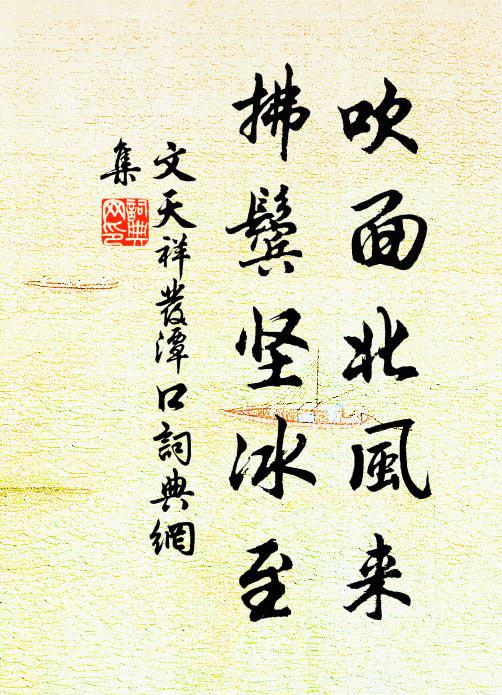 吹面北風来
拂鬓坚冰至
文天祥發潭口詞典網
集
詞典
网印